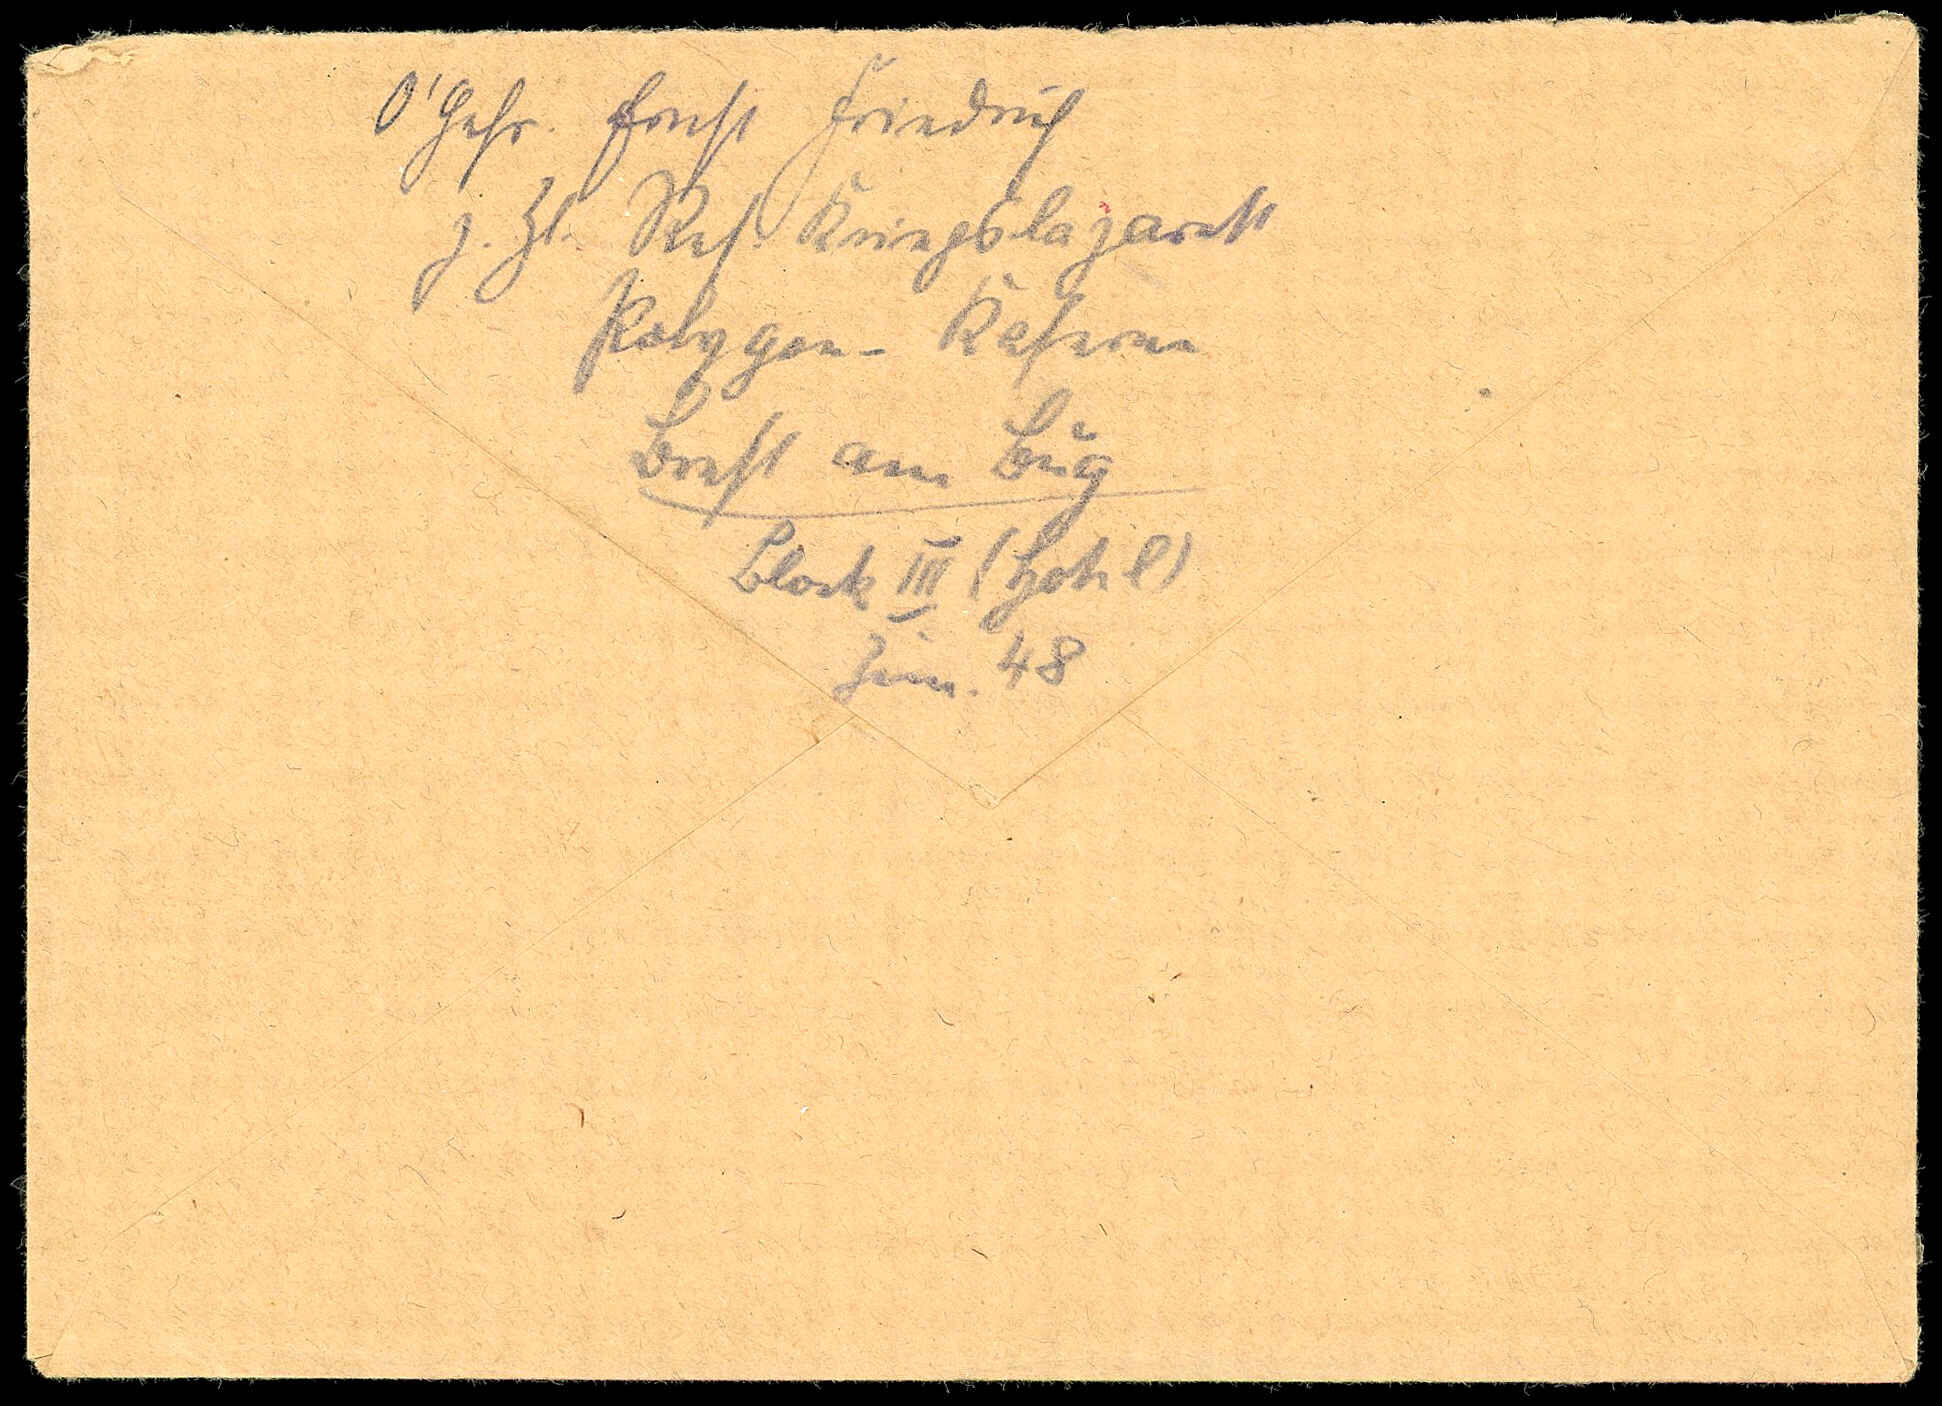 O'Gefr. Ernst Friedrich
z. Zt. Res. Kriegslazarett
Polygon-Kaserne
Brest am Bug
Block III (Hotel)
Zim. 48